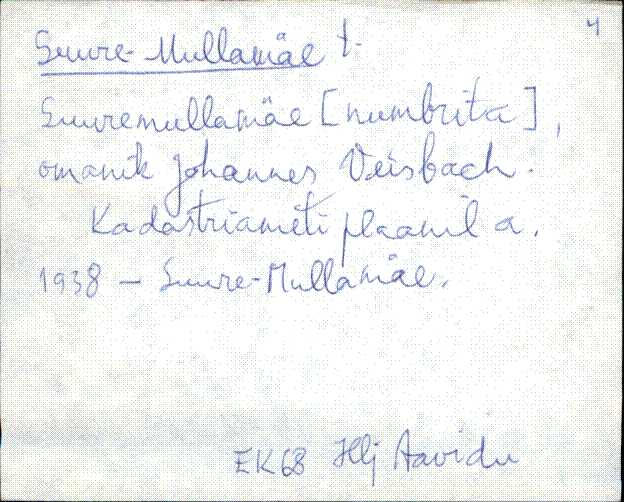 4
Suure-Mullamäe t.
Suuremullamäe [numbrita],
omanik Johannes Veisbach.
Kadastriameti plaanil a.
1938 – Suure-Mullamäe.
EK 68 Hlj Aavidu